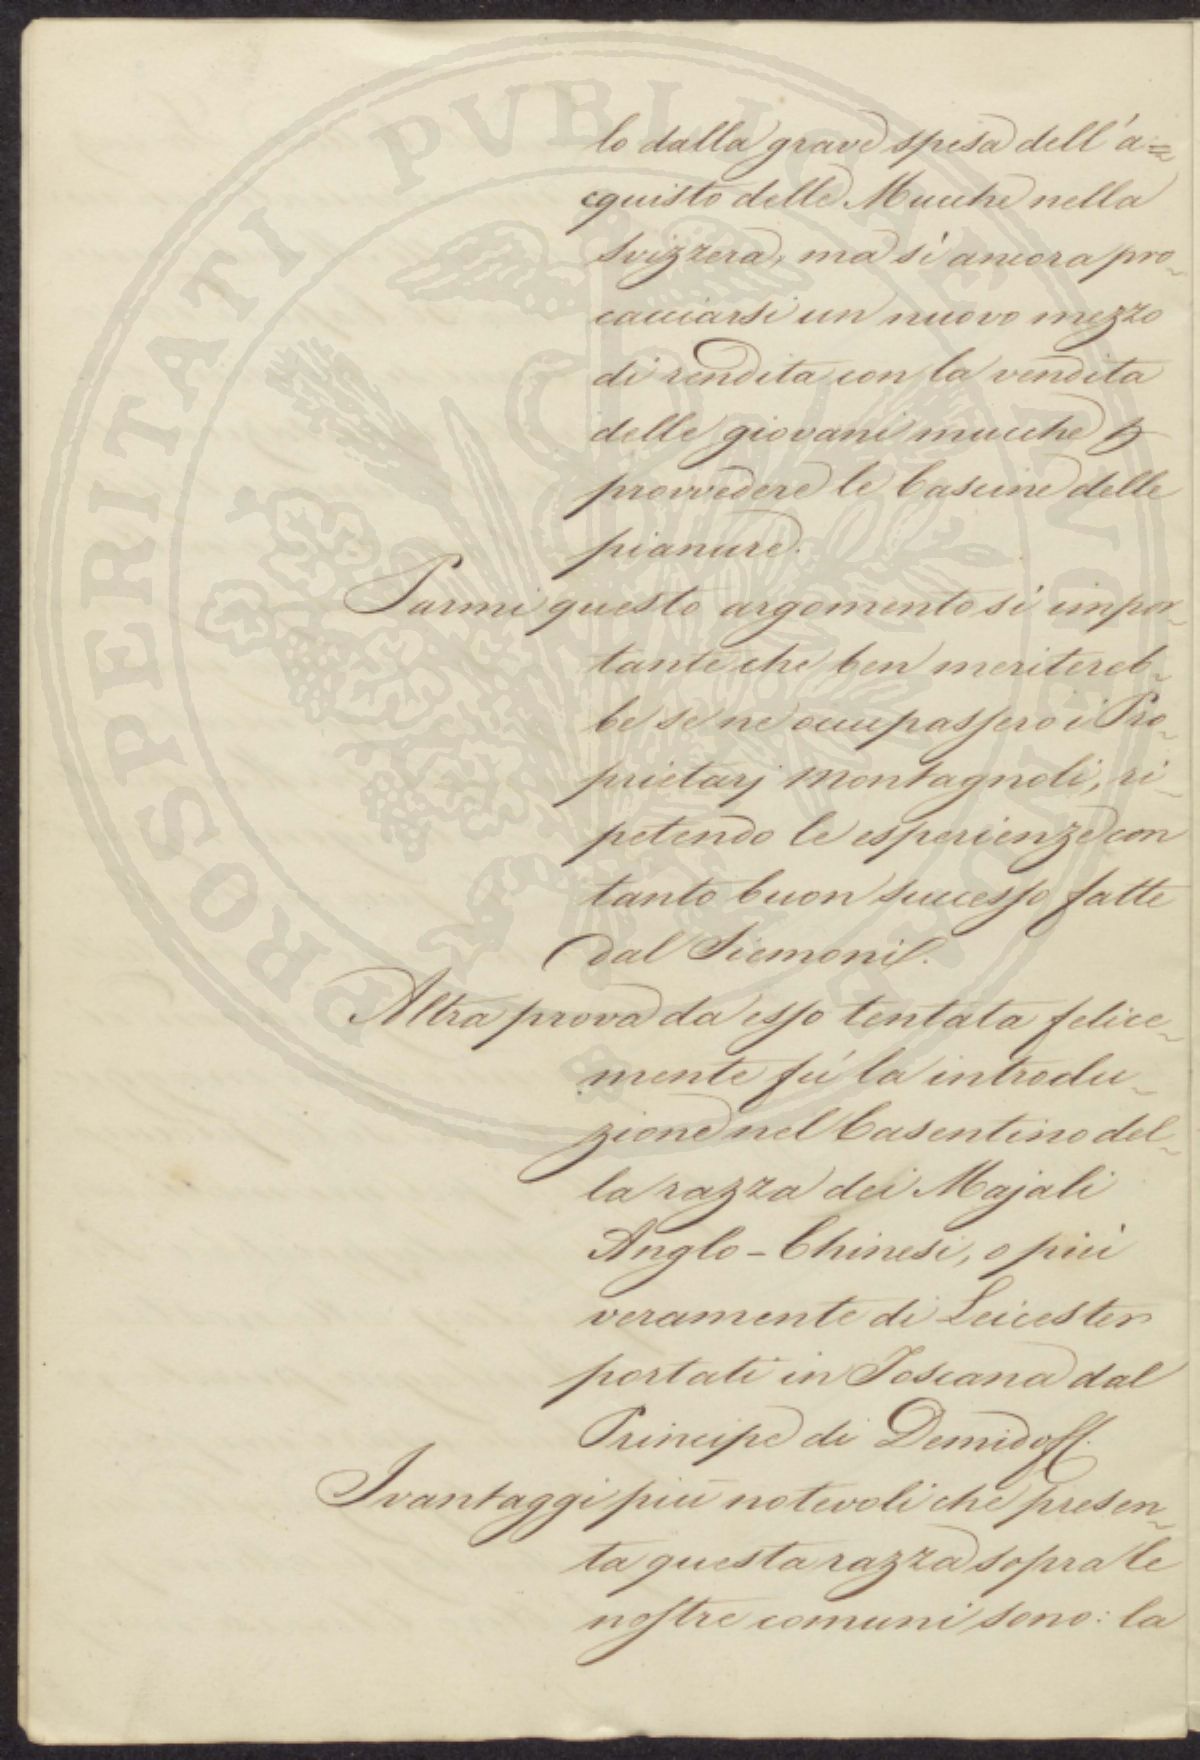 lo dalla grave spesa dell'a=
cquisto delle Mucche nella
Svizzera, ma sì ancora pro-
cacciarsi un nuovo mezzo
di rendita con la vendita
delle giovani mucche p
provvedere le Cascine delle
pianure.
Parmi questo argomento sì impor-
tante che ben meritereb-
be se ne occupassero i Pro-
prietarj Montagnoli, ri-
petendo le esperienze con
tanto buon successo fatte
dal Siemoni.
Altra prova da esso tentata felice-
mente fù la introdu-
zione nel Casentino del-
la razza dei Majali
Anglo-Chinesi, o più
veramente di Leicester
portati in Toscana dal
Principe di Demidoff.
I vantaggi più notevoli che presen-
ta questa razza sopra le
nostre comuni sono: la
PROSPERITATI PVBLICAE